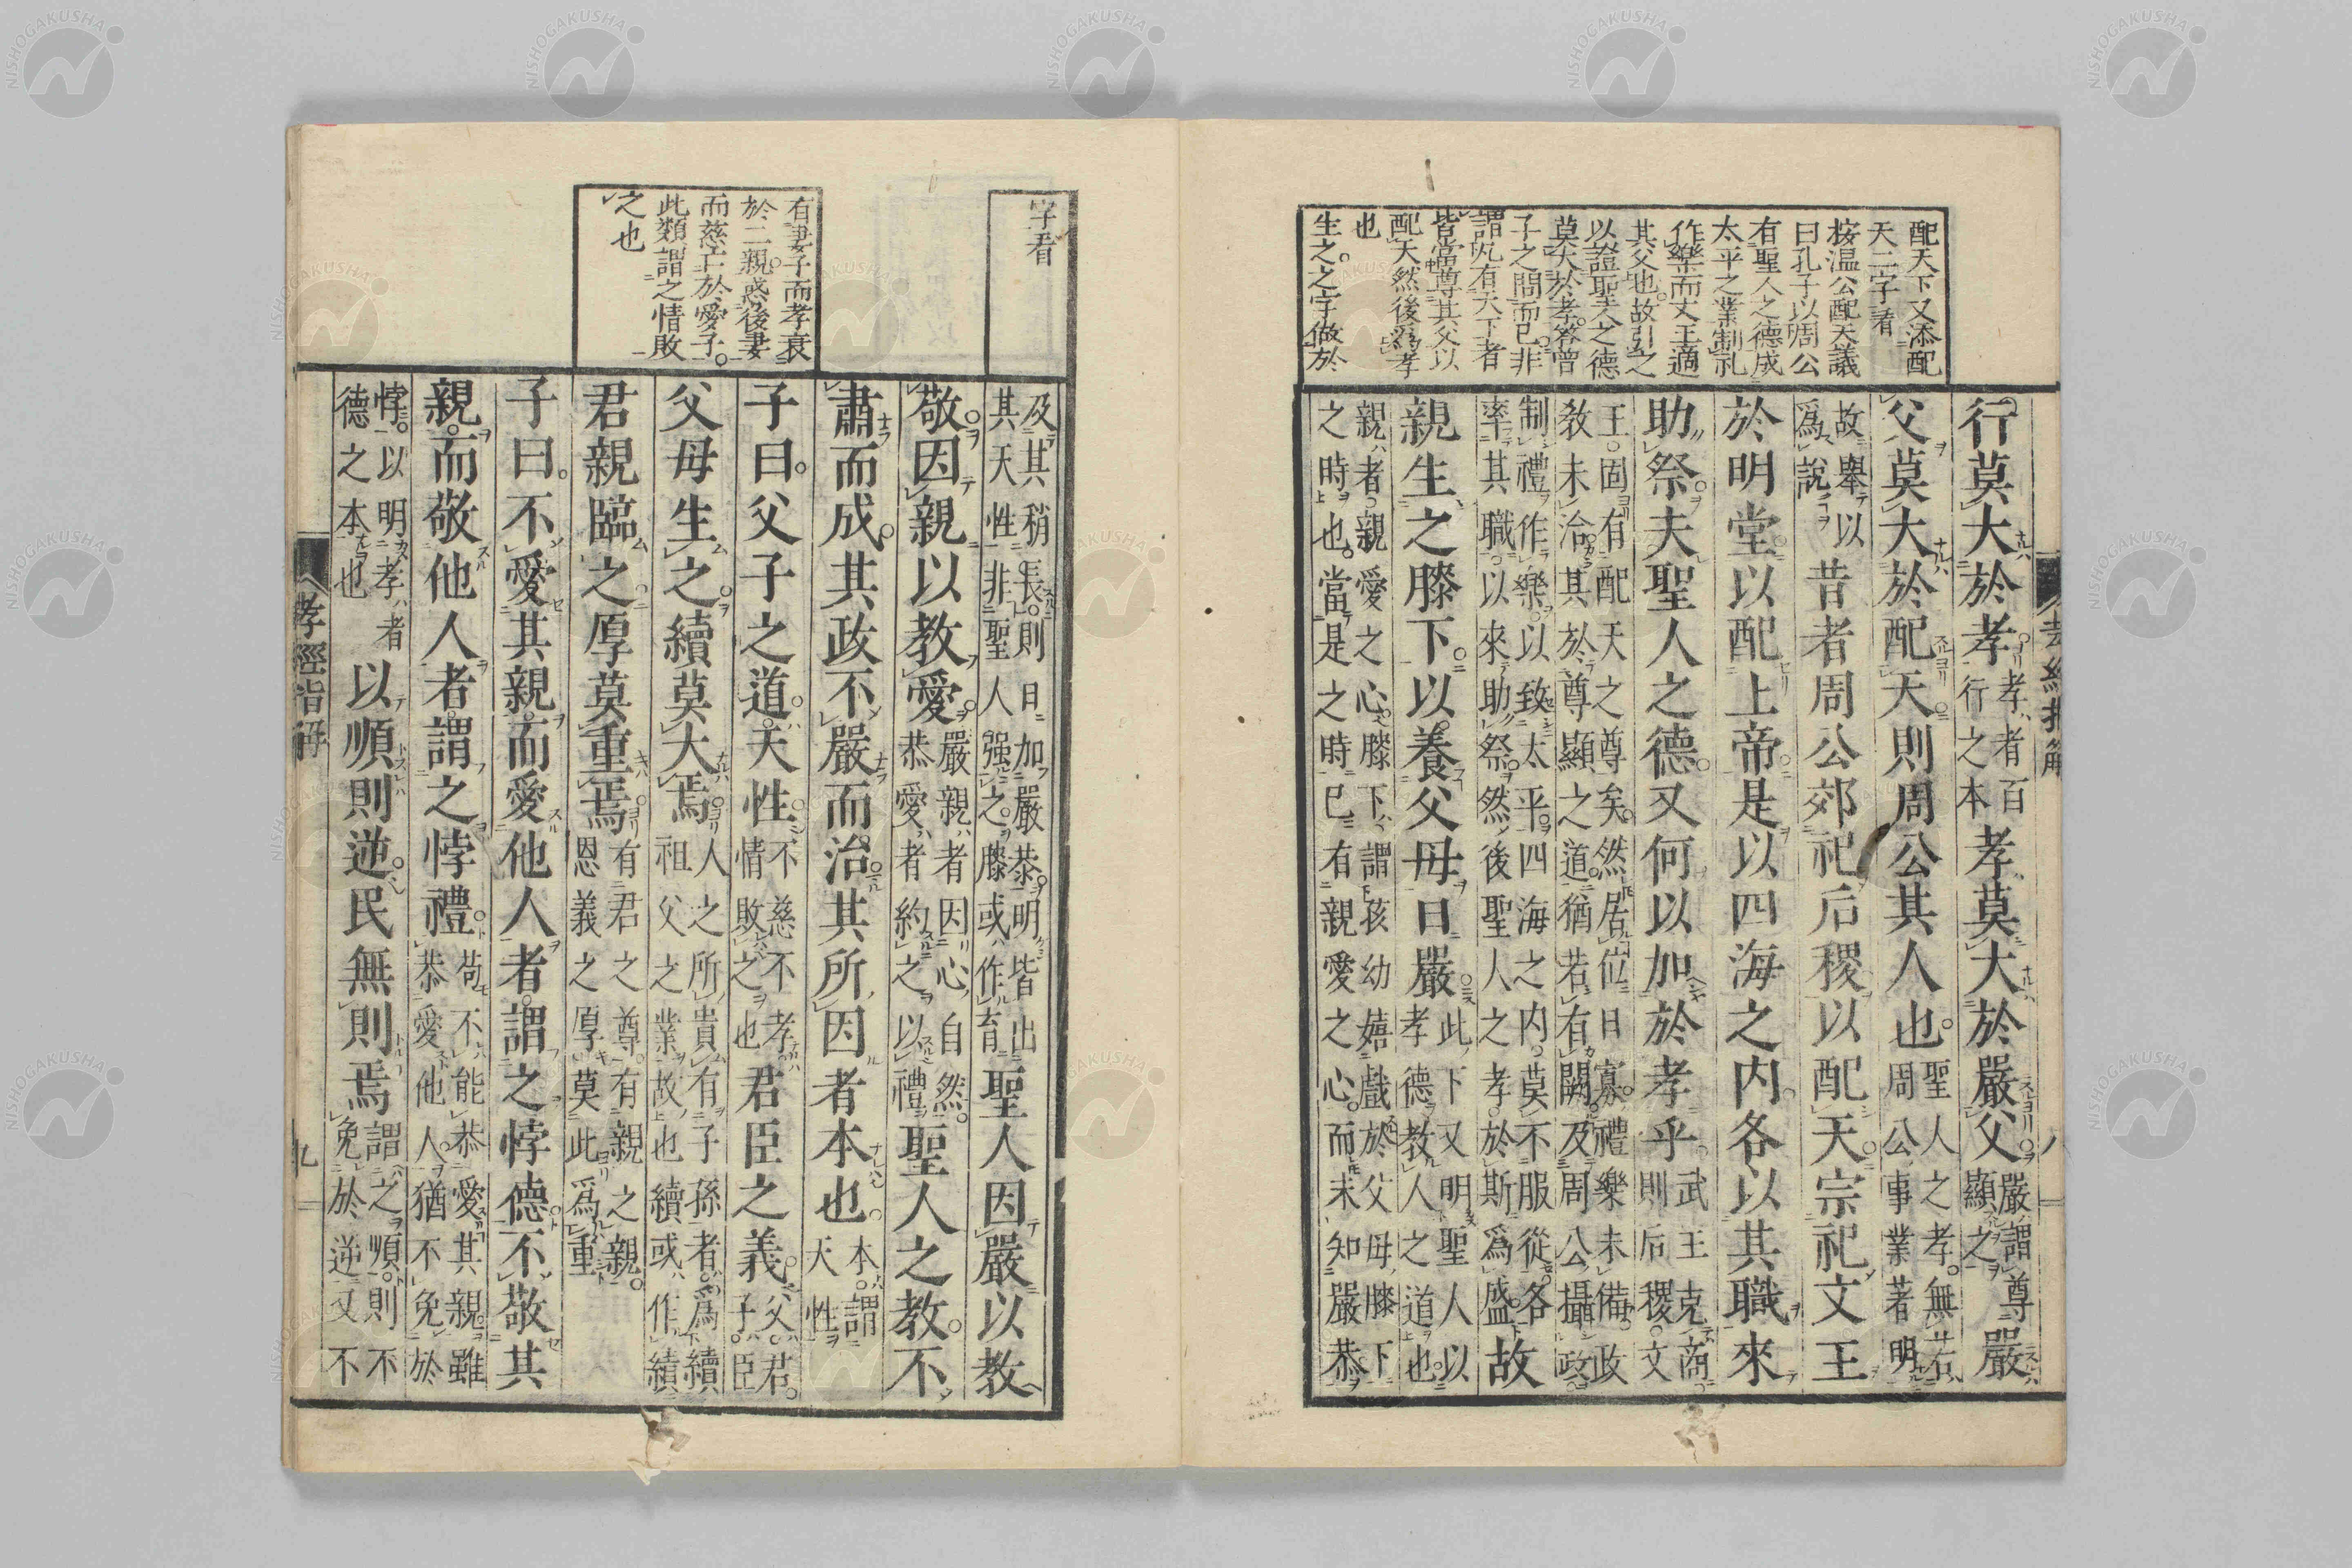 配天下又添配
天二字看
按温公配天議
曰孔子以周公
有聖人之德成
太平之業制礼
作樂而文王適
其父也故引之
以證聖人之德
莫大於孝答曾
子之問而已非
謂凡有天下者
皆當尊其父以
配天然後爲孝
也
生之之字做於
孝經指解 八
行莫大於孝孝者百行之本孝莫大於嚴父嚴謂尊顯之嚴
父莫大於配天則周公其人也聖人之孝無若周公事業著明
故舉以爲說昔者周公郊祀后稷以配天宗祀文王
於明堂以配上帝是以四海之内各以其職來
助祭夫聖人之德又何以加於孝乎武王克商則后稷文
王固有配天之尊矣然居位日寡禮樂未備政
教未洽其於尊顯之道猶若有闕及周公攝政
制禮作樂以致太平四海之内莫不服從各率其職以來助祭然後聖人之孝於斯爲盛故
親生之膝下以養父母日嚴此下又明聖人以孝德教人之道也
親者親愛之心膝下謂孩幼嬉戲於父母膝下
之時也當是之時已有親愛之心而未知嚴恭
字看
有妻子而孝衰
於二親惑後妻
而慈亡於愛子
此類謂之情敗
之也
及其稍長則日加嚴恭明皆出其天性非聖人強之膝或作育聖人因嚴以教
敬因親以教愛嚴親者因心自然恭愛者約之以禮聖人之教不
肅而成其政不嚴而治其所因者本也本謂天性
子曰父子之道天性不慈不孝情敗之也君臣之義父君子臣
父母生之續莫大焉人之所貴有子孫者爲續祖父之業故也續或作績
君親臨之厚莫重焉有君之尊有親之親恩義之厚莫此爲重
子曰不愛其親而愛他人者謂之悖德不敬其
親而敬他人者謂之悖禮苟不能恭愛其親雖恭愛他人猶不免於
悖以明孝者德之本也以順則逆民無則焉謂之順則不免於逆又不
孝經指解 九